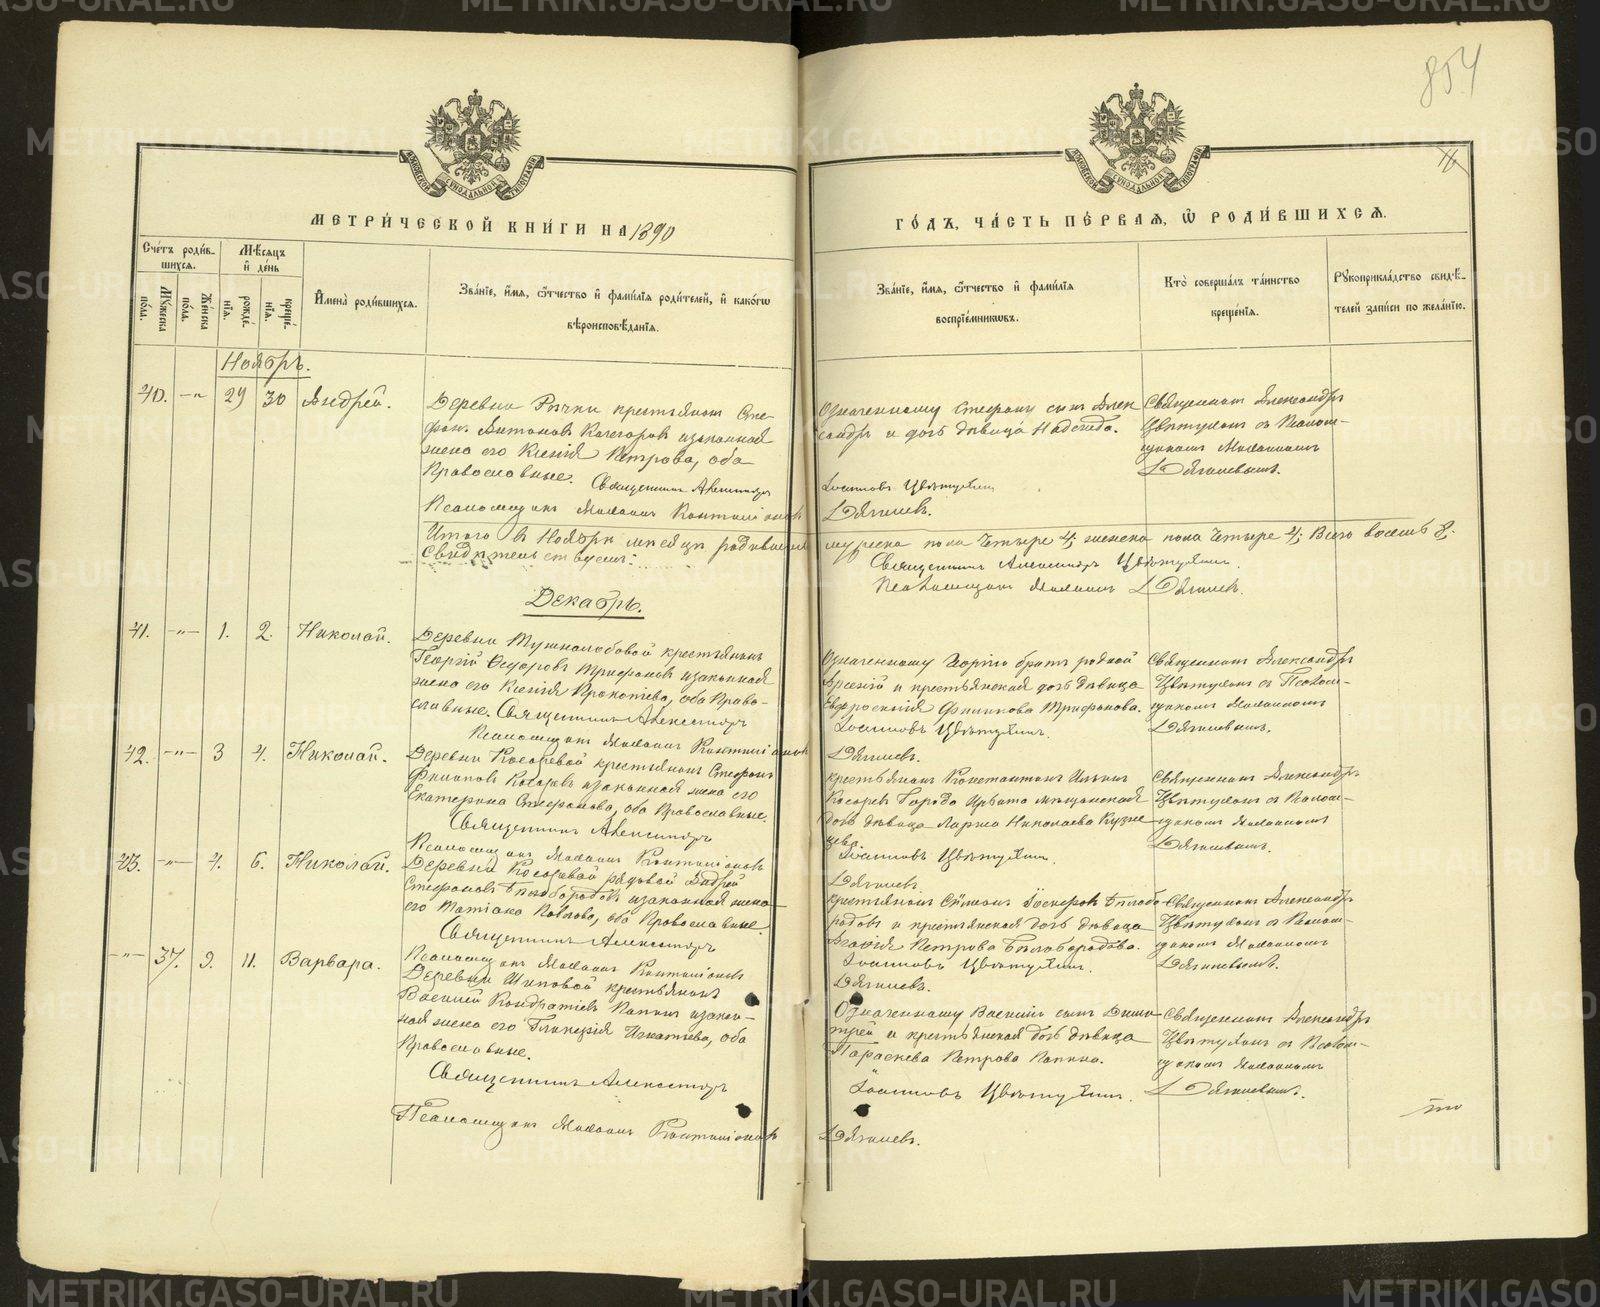 854
МЕТРИ́ЧЕСКОЙ КНИ́ГИ НА 1890
ГО́ДЪ, ЧА́СТЬ ПЕ́РВАЯ, Ѡ РОДИ́ВШИХСЯ.
Сче́тъ роди́в-
шихся.
Мꙋжеска по́ла.
Же́нска по́ла.
Мѣ́сяцъ и҆ де́нь
рожде́нїя.
креще́нїя.
И҆мена̀ роди́вшихся.
Зва́нїе, и҆́мя, ѻ҆́тчество и҆ фами́лїя роди́телей, и҆ како́гѡ
вѣроисповѣ́данїя.
Зва́нїе, и҆́мя, ѻ҆́тчество и҆ фами́лїя
воспрїе́мникѡвъ.
Кто̀ соверша́лъ та́инство
креще́нїя.
Рꙋкоприкла́дство свидѣ́-
телей за́писи по жела́нїю.
Ноябрь.
40. -"- 29 30 Андрей.
Деревни Речки крестьянинъ Сте-
фанъ Антоновъ Качегоровъ и законная
жена его Ксенія Петрова, оба
Православные. Священникъ Александръ
Псаломщикъ
Означенному Стефану сынъ Алек
сандръ и дочь дѣвица Надежда.
Іоанновъ Цвѣтухинъ
Дягилевъ.
Священникъ Александръ
Цвѣтухинъ съ Псалом-
щикомъ
Дягилевымъ.
Итого въ Ноябрѣ мѣсяцѣ родившихся
мужеска пола четыре 4; женска пола четыре 4; Всего восемь 8.
Свидѣтельствуемъ:
Священникъ Александръ Цвѣтухинъ.
Псаломщикъ Дягилевъ.
Декабрь.
41. -"- 1. 2. Николай.
Деревни Тушнолобовой крестьянинъ
Георгій Ѳедоровъ Трифоновъ и законная
жена его Ксенія Прокопіева, оба Право-
славные. Священникъ Александръ
Псаломщикъ
Означенному Георгію братъ родной
Арсеній и крестьянская дочь дѣвица
Евфросинія Филипова Трифонова.
Іоанновъ Цвѣтухинъ.
Дягилевъ.
Священникъ Александръ
Цвѣтухинъ съ Псалом-
щикомъ
Дягилевымъ.
42. -"- 3 4. Николай.
Деревни Косаревой крестьянинъ Стефанъ
Филиповъ Косаревъ и законная жена его
Екатерина Стефанова, оба Православные.
Священникъ Александръ
Псаломщикъ
крестьянинъ Константинъ Ильинъ
Косаревъ Города Ирбита мѣщанская
дочь дѣвица Лариса Николаева Кузне
цева.
Іоанновъ Цвѣтухинъ.
Дягилевъ.
Священникъ Александръ
Цвѣтухинъ съ Псалом-
щикомъ
Дягилевымъ.
43. -"- 4. 6. Николай.
Деревни Косаревой рядовой Андрей
Стефановъ Бѣлобородовъ и законная жена
его Татіана Павлова, оба Православные.
Священникъ Александръ
Псаломщикъ
крестьянинъ Бѣлобо
родовъ и крестьянская дочь дѣвица
Агафія Петрова Бѣлобородова.
Іоанновъ Цвѣтухинъ.
Дягилевъ.
Священникъ Александръ
Цвѣтухинъ съ Псалом-
щикомъ
Дягилевымъ.
-"- 37. 9. 11. Варвара.
Деревни Шиповой крестьянинъ
Василій Кондратіевъ Капинъ и закон-
ная жена его Гликерія Игнатіева, оба
Православные.
Священникъ Александръ
Псаломщикъ
Означенному Василію сынъ Дими
трій и крестьянская дочь дѣвица
Параскева Петрова Капина.
Іоанновъ Цвѣтухинъ.
Дягилевъ.
Священникъ Александръ
Цвѣтухинъ съ Псалом-
щикомъ
Дягилевымъ.
METRIKI.GASO-URAL.RU